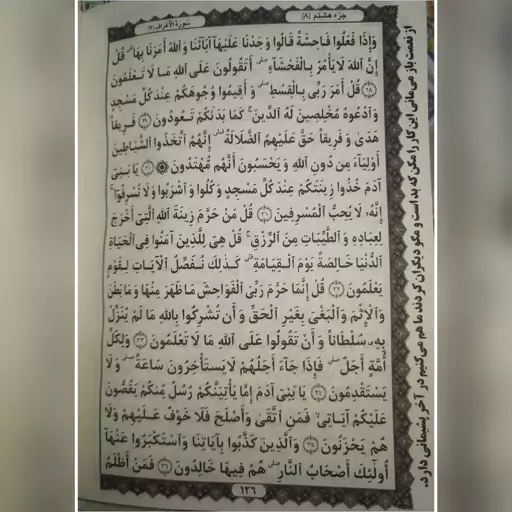 جزء هشتم [۸]
سورة الأعراف (۷)
وَإِذَا فَعَلُوا فَاحِشَةً قَالُوا وَجَدْنَا عَلَيْهَا آبَاءَنَا وَاللَّهُ أَمَرَنَا بِهَا ۗ قُلْ
إِنَّ اللَّهَ لَا يَأْمُرُ بِالْفَحْشَاءِ ۖ أَتَقُولُونَ عَلَى اللَّهِ مَا لَا تَعْلَمُونَ
﴿۲۸﴾ قُلْ أَمَرَ رَبِّي بِالْقِسْطِ ۖ وَأَقِيمُوا وُجُوهَكُمْ عِنْدَ كُلِّ مَسْجِدٍ
وَادْعُوهُ مُخْلِصِينَ لَهُ الدِّينَ ۚ كَمَا بَدَأَكُمْ تَعُودُونَ ﴿۲۹﴾ فَرِيقًا
هَدَىٰ وَفَرِيقًا حَقَّ عَلَيْهِمُ الضَّلَالَةُ ۗ إِنَّهُمُ اتَّخَذُوا الشَّيَاطِينَ
أَوْلِيَاءَ مِنْ دُونِ اللَّهِ وَيَحْسَبُونَ أَنَّهُمْ مُهْتَدُونَ ﴿۳۰﴾ يَا بَنِي
آدَمَ خُذُوا زِينَتَكُمْ عِنْدَ كُلِّ مَسْجِدٍ وَكُلُوا وَاشْرَبُوا وَلَا تُسْرِفُوا ۚ
إِنَّهُ لَا يُحِبُّ الْمُسْرِفِينَ ﴿۳۱﴾ قُلْ مَنْ حَرَّمَ زِينَةَ اللَّهِ الَّتِي أَخْرَجَ
لِعِبَادِهِ وَالطَّيِّبَاتِ مِنَ الرِّزْقِ ۚ قُلْ هِيَ لِلَّذِينَ آمَنُوا فِي الْحَيَاةِ
الدُّنْيَا خَالِصَةً يَوْمَ الْقِيَامَةِ ۗ كَذَٰلِكَ نُفَصِّلُ الْآيَاتِ لِقَوْمٍ
يَعْلَمُونَ ﴿۳۲﴾ قُلْ إِنَّمَا حَرَّمَ رَبِّيَ الْفَوَاحِشَ مَا ظَهَرَ مِنْهَا وَمَا بَطَنَ
وَالْإِثْمَ وَالْبَغْيَ بِغَيْرِ الْحَقِّ وَأَنْ تُشْرِكُوا بِاللَّهِ مَا لَمْ يُنَزِّلْ
بِهِ سُلْطَانًا وَأَنْ تَقُولُوا عَلَى اللَّهِ مَا لَا تَعْلَمُونَ ﴿۳۳﴾ وَلِكُلِّ
أُمَّةٍ أَجَلٌ ۖ فَإِذَا جَاءَ أَجَلُهُمْ لَا يَسْتَأْخِرُونَ سَاعَةً ۖ وَلَا
يَسْتَقْدِمُونَ ﴿۳۴﴾ يَا بَنِي آدَمَ إِمَّا يَأْتِيَنَّكُمْ رُسُلٌ مِنْكُمْ يَقُصُّونَ
عَلَيْكُمْ آيَاتِي ۙ فَمَنِ اتَّقَىٰ وَأَصْلَحَ فَلَا خَوْفٌ عَلَيْهِمْ وَلَا
هُمْ يَحْزَنُونَ ﴿۳۵﴾ وَالَّذِينَ كَذَّبُوا بِآيَاتِنَا وَاسْتَكْبَرُوا عَنْهَا
أُولَٰئِكَ أَصْحَابُ النَّارِ ۖ هُمْ فِيهَا خَالِدُونَ ﴿۳۶﴾ فَمَنْ أَظْلَمُ
۱۲۶
از نعمت باز می‌مانی این کار را مکن که بد است و مگو دیگران کردند ما هم می‌کنیم در آخر پشیمانی دارد.